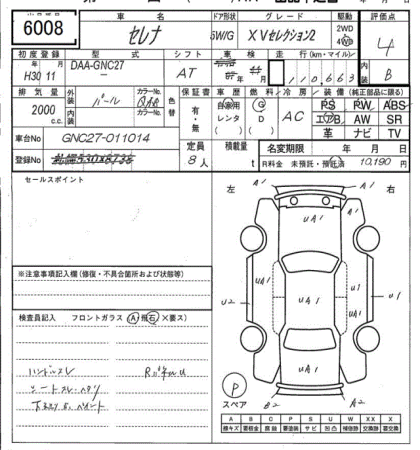 6008
車名
セレナ
ドア形状
5W/G
グレード
XVセレクション2
駆動
2WD
4WD
評価点
4
内装
B
初度登録
年 月
H30 11
型式
DAA-GNC27
シフト
AT
車検
年 月
走行(km・マイル)
110663
排気量
2000
c.c.
外装
パール
内装
カラーNo.
QAB
カラーNo.
色替
保証書
有・無
車歴
自家用
レンタ
燃料
G
D
冷房
AC
装備(純正部品に限る)
PS PW ABS
エアB. AW SR
革 ナビ TV
車台No
GNC27-011014
登録No
定員
8人
積載量
t
名変期限
年 月 日
R料金 未預託・預託済 10,190円
セールスポイント
左
右
A1
A1
UA1
UA1
UA1
UA1
U1
U2
U1
UA1
P
スペア
B2
A2
※注意事項記入欄(修復・不具合箇所および状態等)
検査員記入 フロントガラス (A) 飛石 ×要ス)
ハンドルスレ
シートスレ・ヘタリ
RパネルU
A B C P S U W X XX
線キズ 要板金 腐蝕 要塗装 サビ 凹凸 補修跡 交換跡 要交換